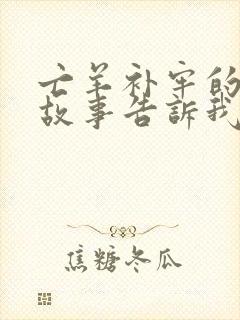 亡羊补牢的
故事告訴我
焦糖冬瓜